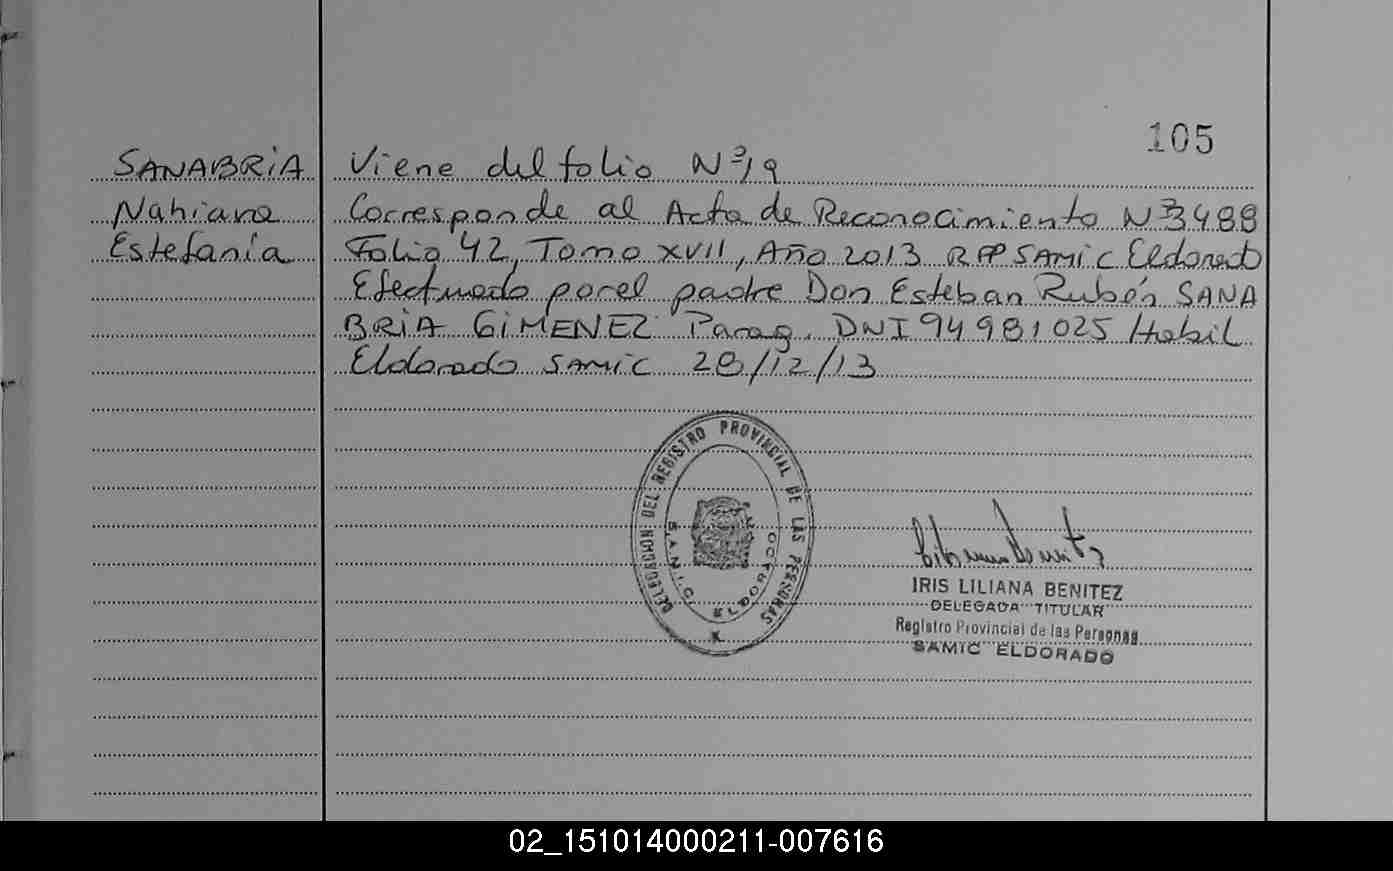 105
SANABRIA
Nahiana
Estefanía
Viene del folio Nº 19
Corresponde al Acta de Reconocimiento Nº 3488
Folio 42, Tomo XVII, Año 2013 RPP SAMIC Eldorado
Efectuado por el padre Don Esteban Rubén SANA
BRIA GIMENEZ Parag. DNI 94981025 Habil
Eldorado SAMIC 28/12/13
DELEGACION DEL REGISTRO PROVINCIAL DE LAS PERSONAS
S.A.M.I.C. ELDORADO
IRIS LILIANA BENITEZ
DELEGADA TITULAR
Registro Provincial de las Personas
SAMIC ELDORADO
02_151014000211-007616